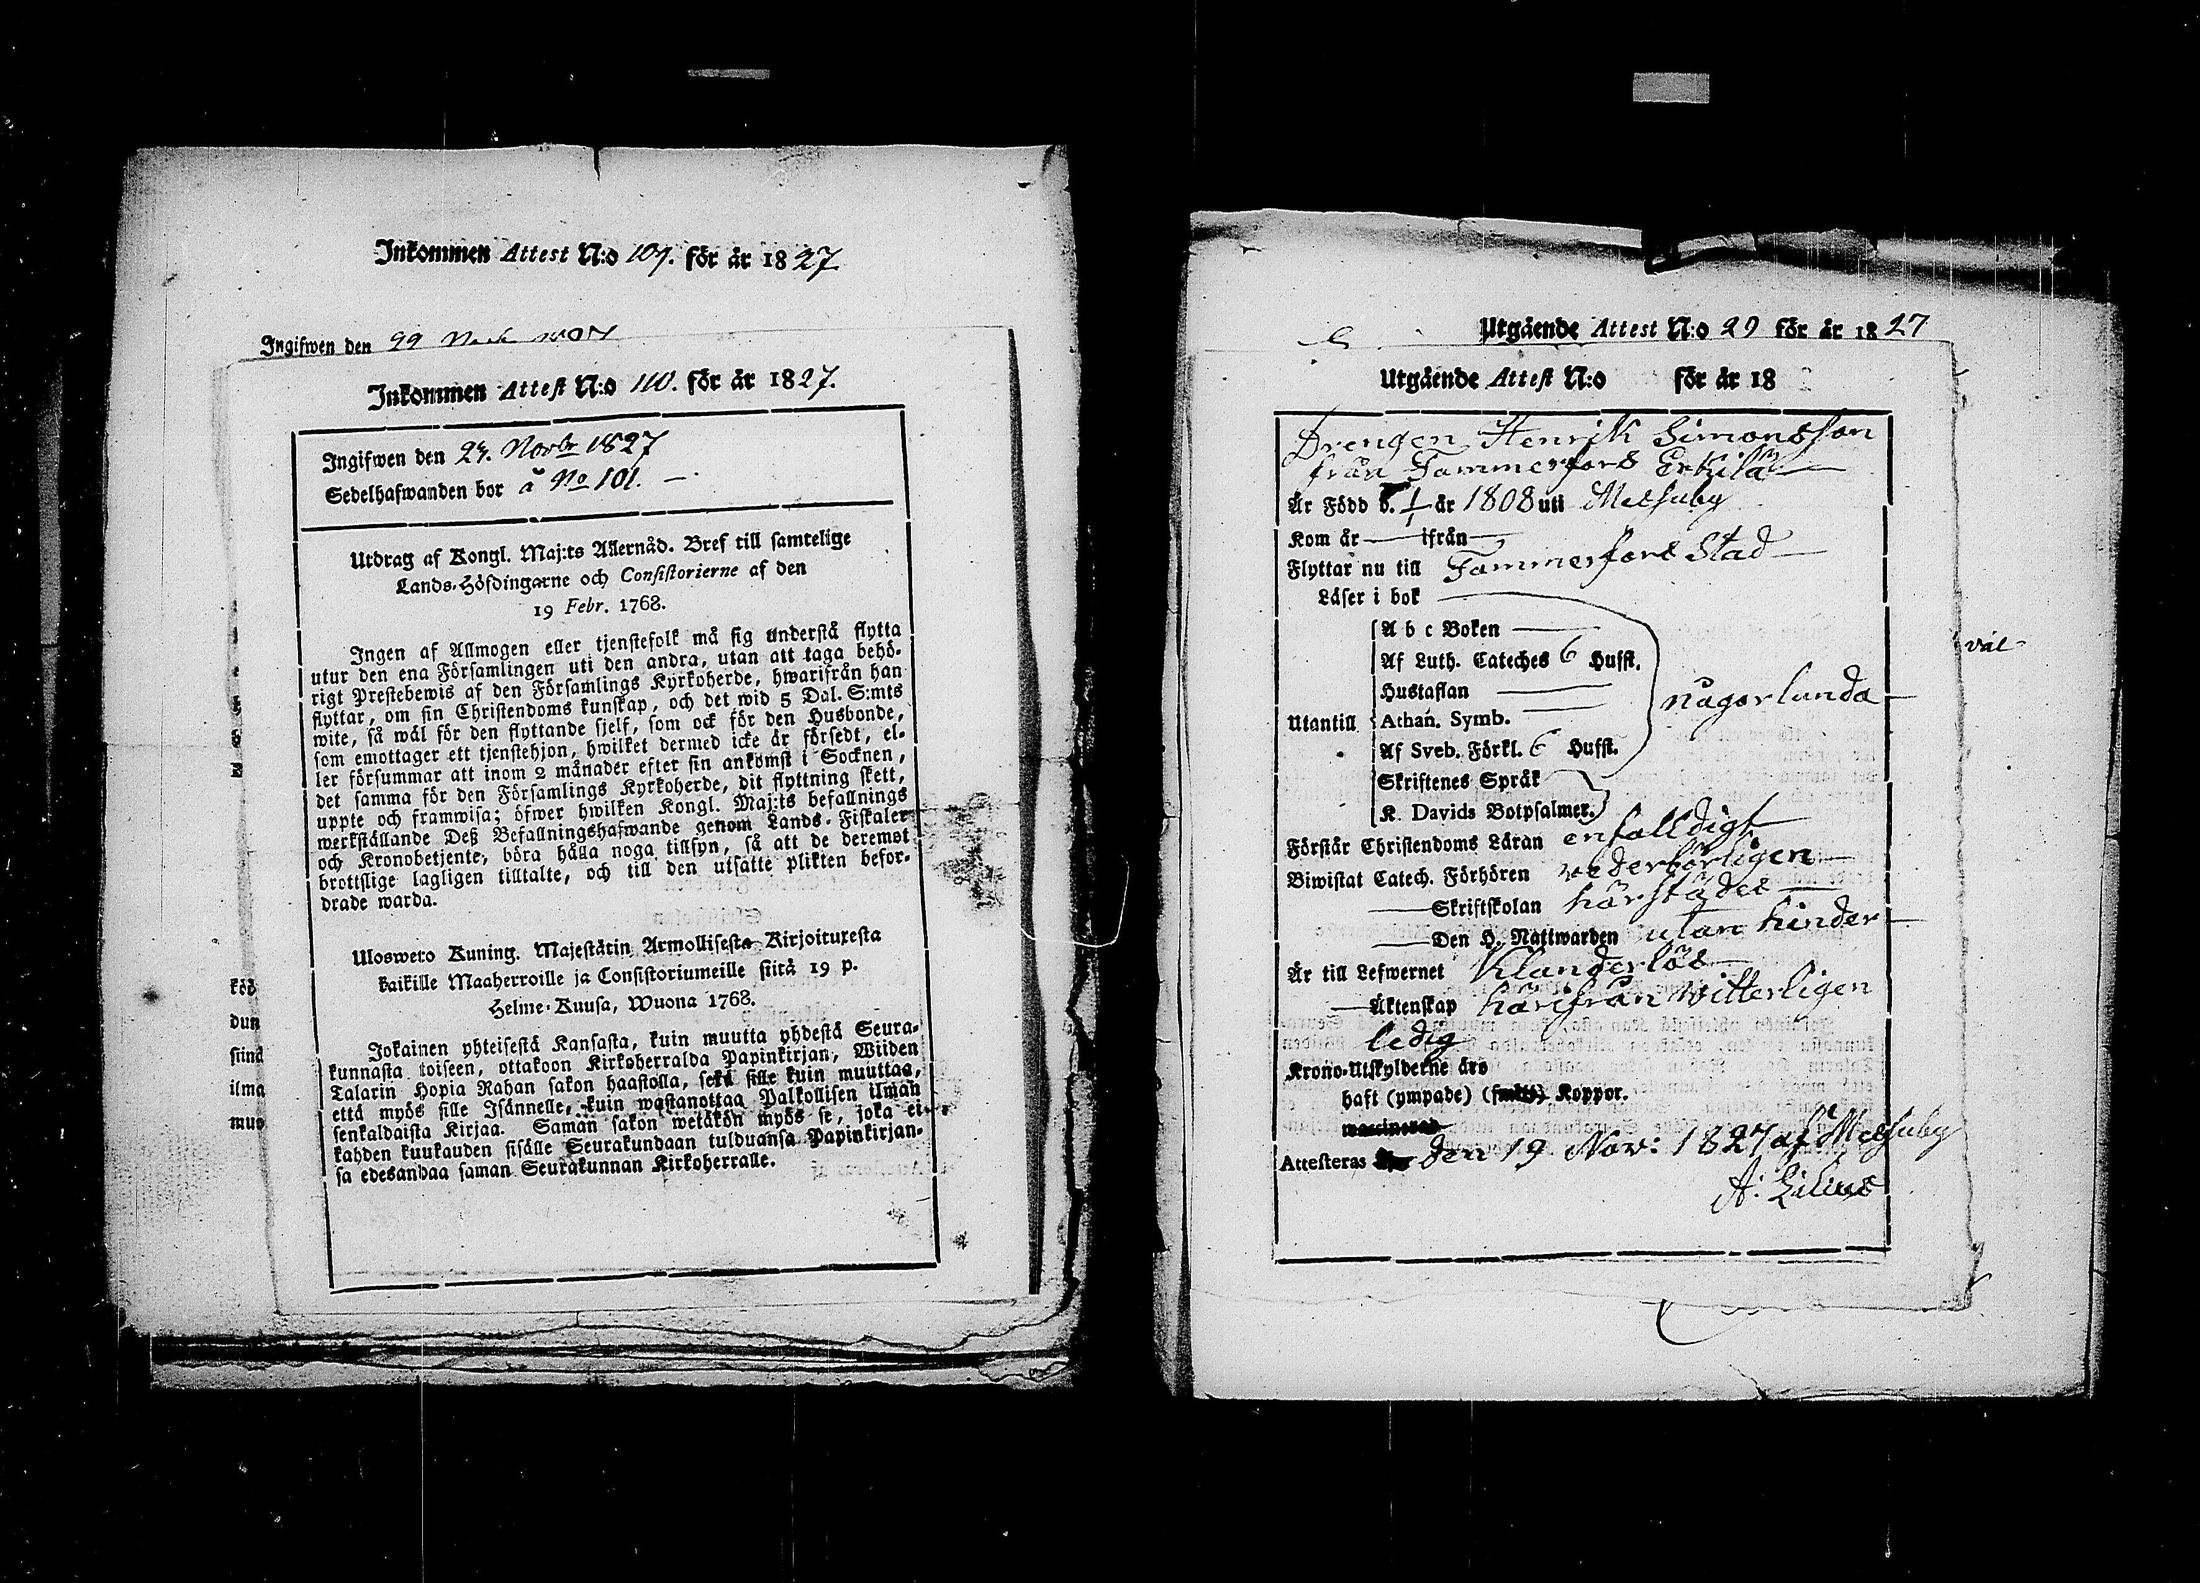 Inkommen Attest N:o 107. för år 1827.
Ingifwen den 22
Inkommen Attest N:o 110. för år 1827.
Ingifwen den 23. Novbr 1827
Sedelhafwanden bor å No 101. —
Utdrag af Kongl. Maj:ts Allernåd. Bref till samtelige
Lands-Höfdingarne och Consistorierne af den
19 Febr. 1768.
Ingen af Allmogen eller tjenstefolk må sig understå flytta
utur den ena Församlingen uti den andra, utan att taga behö-
rigt Prestebewis af den Församlings Kyrkoherde, hwarifrån han
flyttar, om sin Christendoms kunskap, och det wid 5 Dal. S:mts
wite, så wäl för den flyttande sjelf, som ock för den Husbonde,
som emottager ett tjenstehjon, hwilket dermed icke är försedt, el-
ler försummar att inom 2 månader efter sin ankomst i Socknen,
det samma för den Församlings Kyrkoherde, dit flyttning skett,
uppte och framwisa; öfwer hwilken Kongl. Maj:ts befallnings
werkställande Deß Befallningshafwande genom Lands-Fiskaler
och Kronobetjente, böra hålla noga tillsyn, så att de deremot
brottslige lagligen tilltalte, och till den utsatte plikten befor-
drade warda.
Uloswetto Kuning. Majestätin Armollisesta Kirjoituxesta
kaikille Maaherroille ja Consistoriumeille siitä 19 p.
Helme-Kuusa, Wuona 1768.
Jokainen yhteisestä Kansasta, kuin muutta yhdestä Seura-
kunnasta toiseen, ottakoon Kirkoherralda Papinkirjan, Wiiden
Talarin Hopia Rahan sakon haastolla, sekä sille kuin muuttaa,
että myös sille Isännelle, kuin wastanottaa Palkollisen ilman
senkaldaista Kirjaa. Saman sakon wetäkön myös se, joka ei
kahden kuukauden sisälle Seurakundaan tulduansa Papinkirjan-
sa edesandaa saman Seurakunnan Kirkoherralle.
köö
dun
siinä
ilma
muo
Utgående Attest N:o 29 för år 1827
Utgående Attest N:o för år 18
Drengen Henrik Simonsson
från Tammerfors Erkilä —
Är Född d. år 1808 uti Messuby
Kom år — ifrån —
Flyttar nu till Tammerfors Stad —
Läser i bok
A b c Boken —
Af Luth. Cateches 6 Hufst.
Hustaflan —
någorlunda —
Utantill Athan. Symb. —
Af Sveb. Förkl. 6 Hufst.
Skriftenes Språk
K. Davids Botpsalmer.
Förstår Christendoms Läran enfalldigt
Biwistat Catech. Förhören vederbörligen —
— Skriftskolan härstädes —
— Den H. Nattwarden utan hinder —
Är till Lefwernet Klanderlös —
— Äktenskap härifrån witterligen
ledig
Krono-Utskylderne års
haft (ympade) (små) Koppor.
vaccinerad
Attesteras den 19 Nov: 1827 af Messuby
A: Lilius
väl